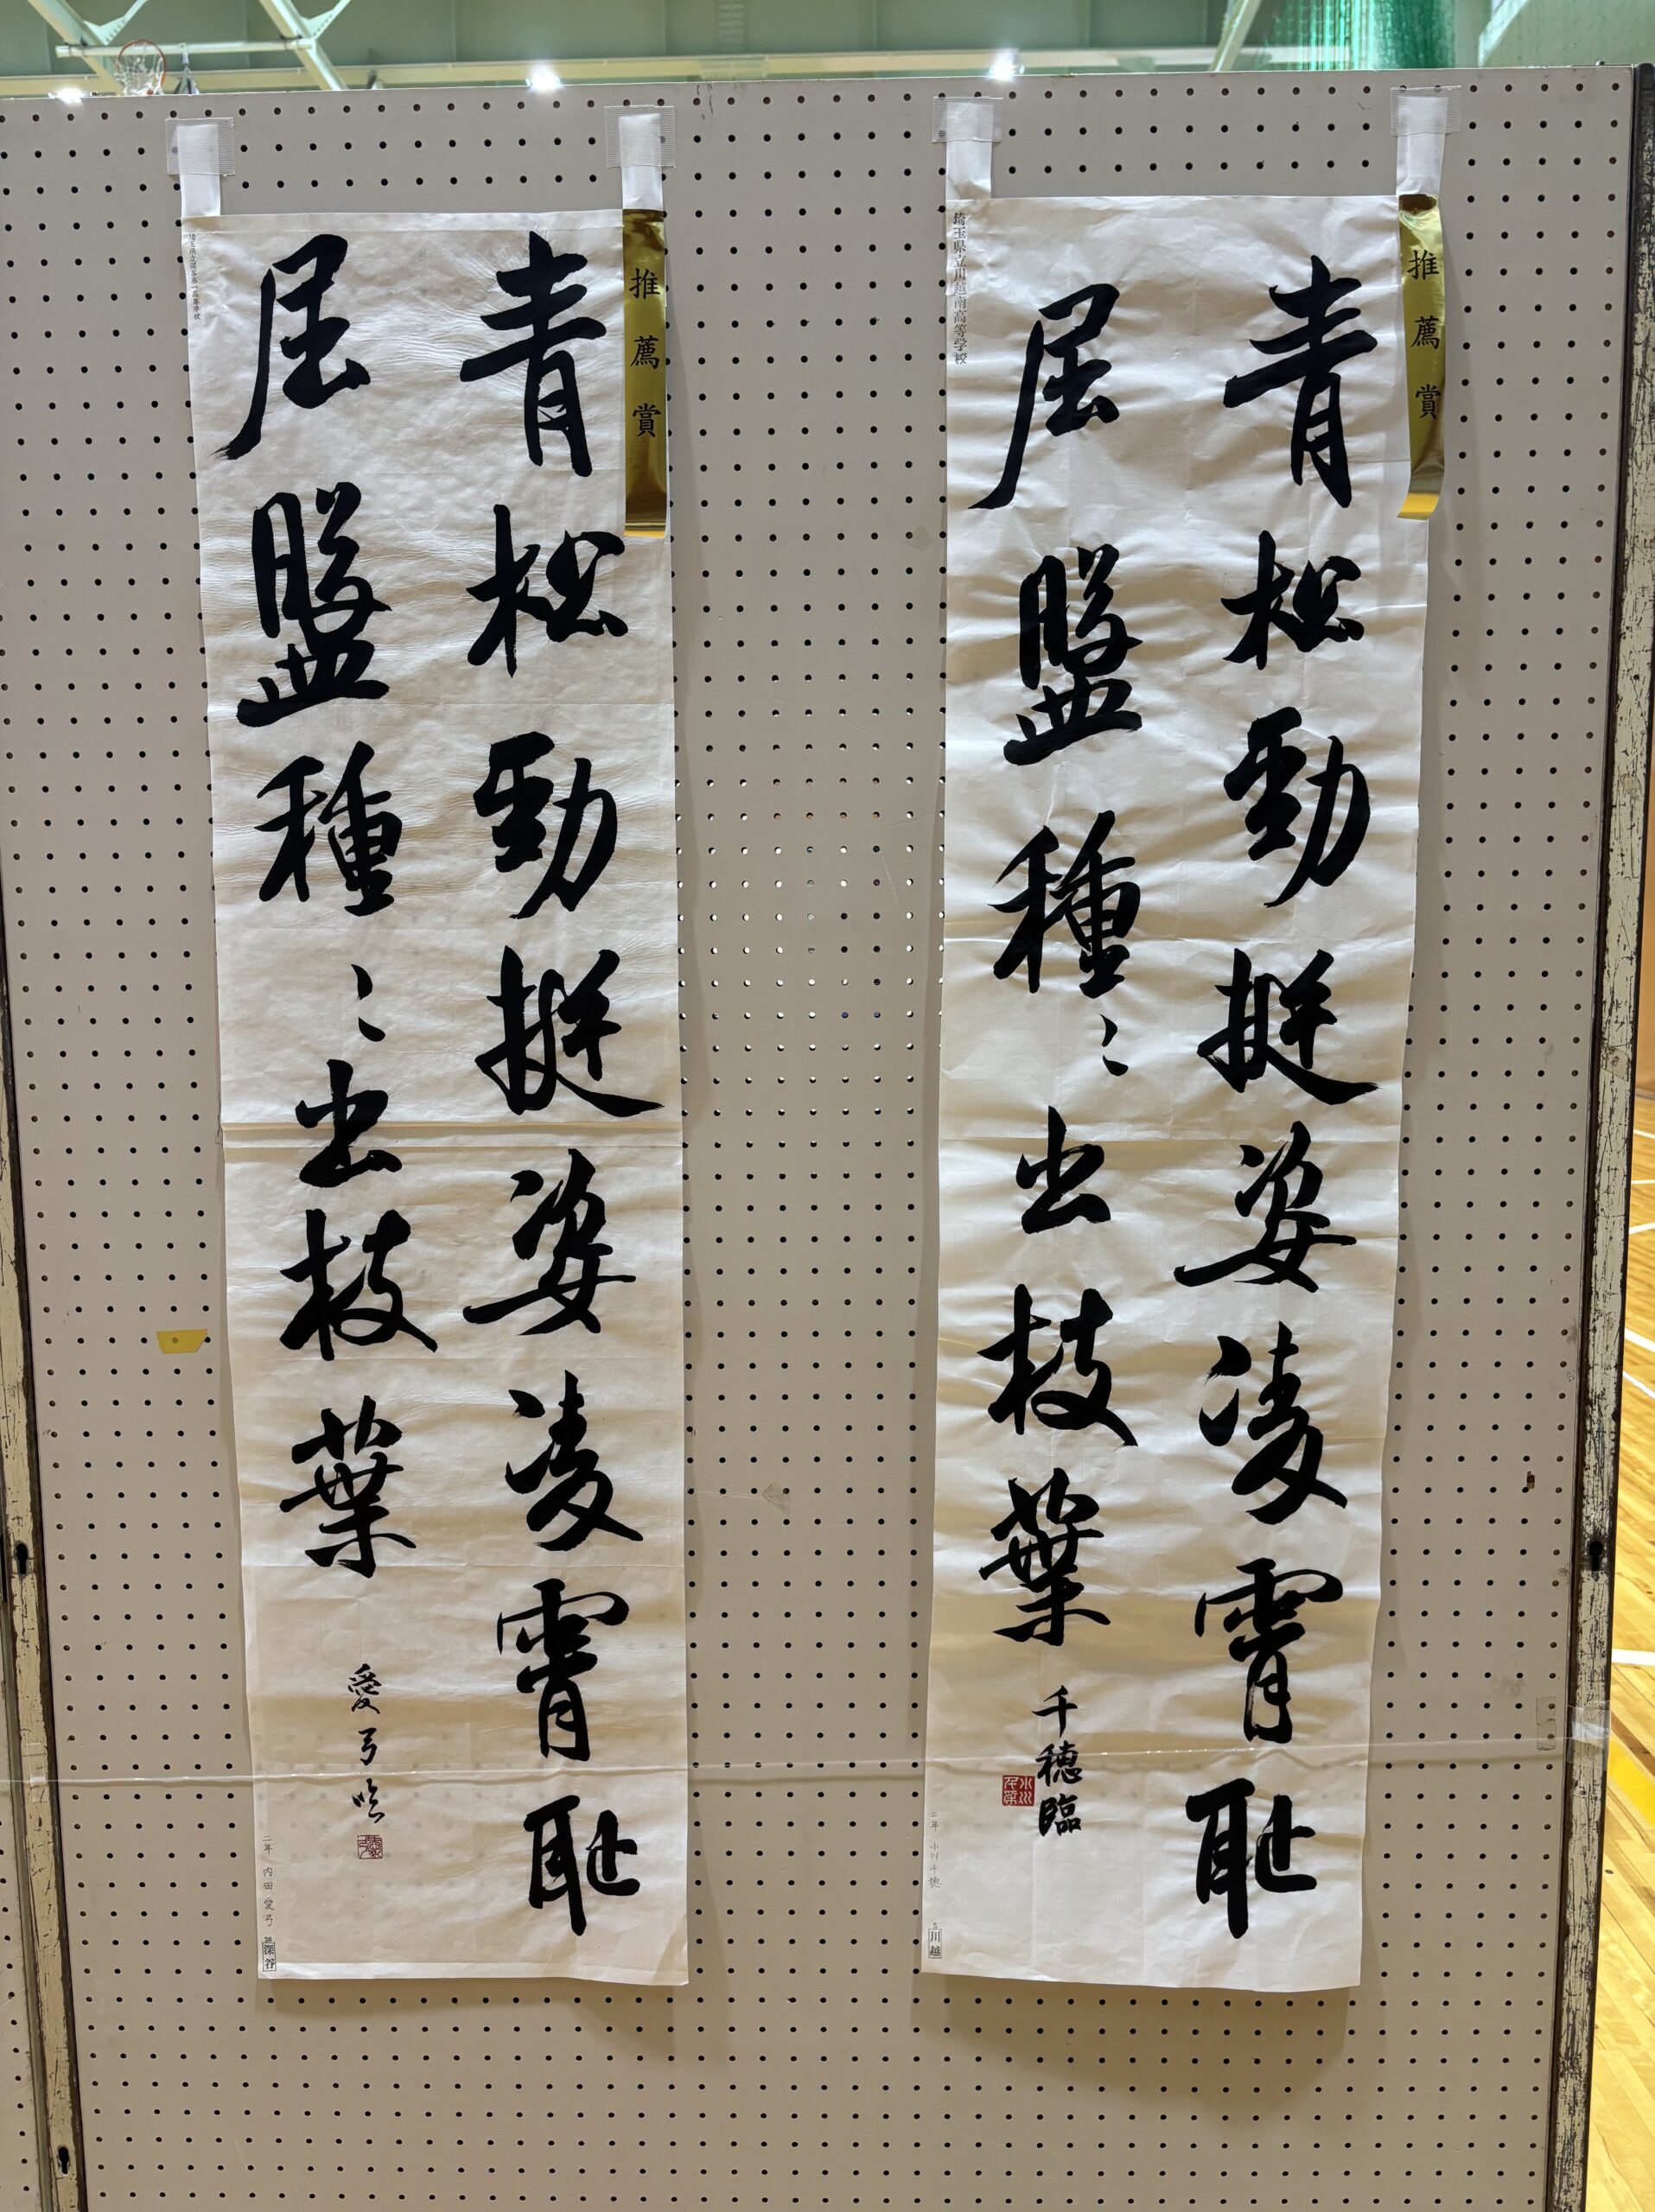 推薦賞
埼玉県立川越南高等学校
青松勁挺姿凌霄恥
屈盤種〻出枝葉
千穂臨
二年 小川千穂
5 川越
推薦賞
青松勁挺姿凌霄恥
屈盤種〻出枝葉
愛弓臨
二年 内田愛弓
深谷